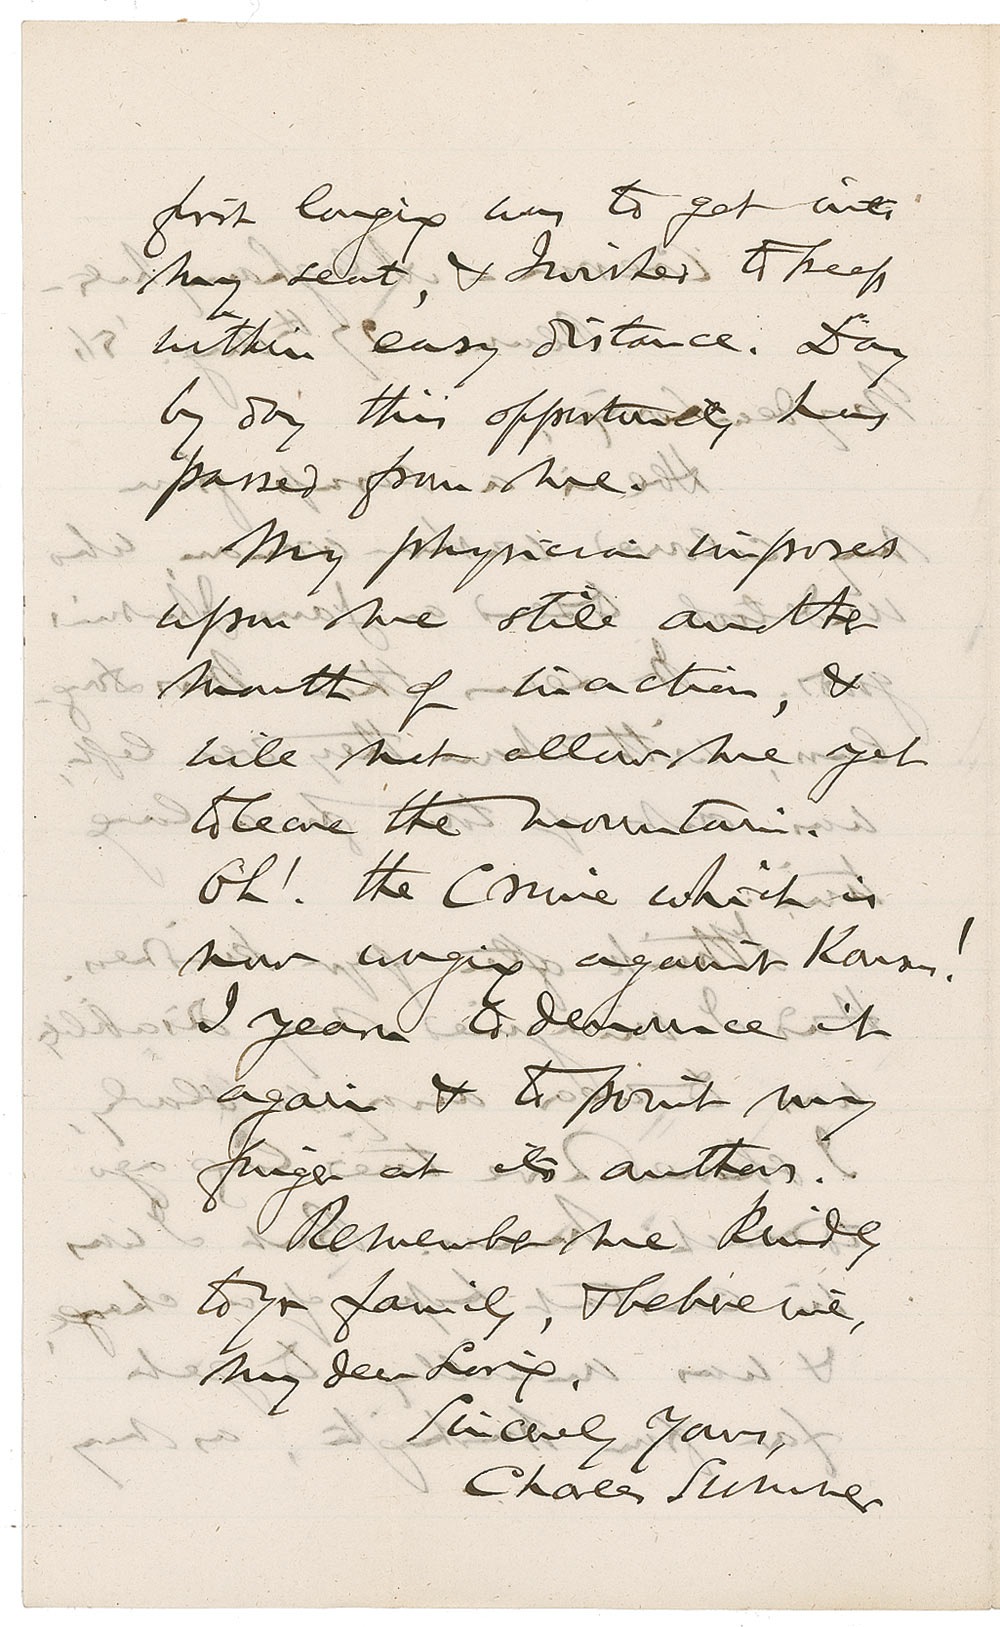 first longing was to get into
my seat, & I wished to keep
within easy distance. Day
by day this opportunity has
passed from me.
My physician imposes
upon me still another
month of inaction, &
will not allow me yet
to leave the mountain.
Oh! the Crime which is
now urging against Kansas!
I yearn to denounce it
again & to point my
finger at its authors.
Remember me kindly
to yr family, & believe me,
my dear Loring,
Sincerely Yours,
Charles Sumner